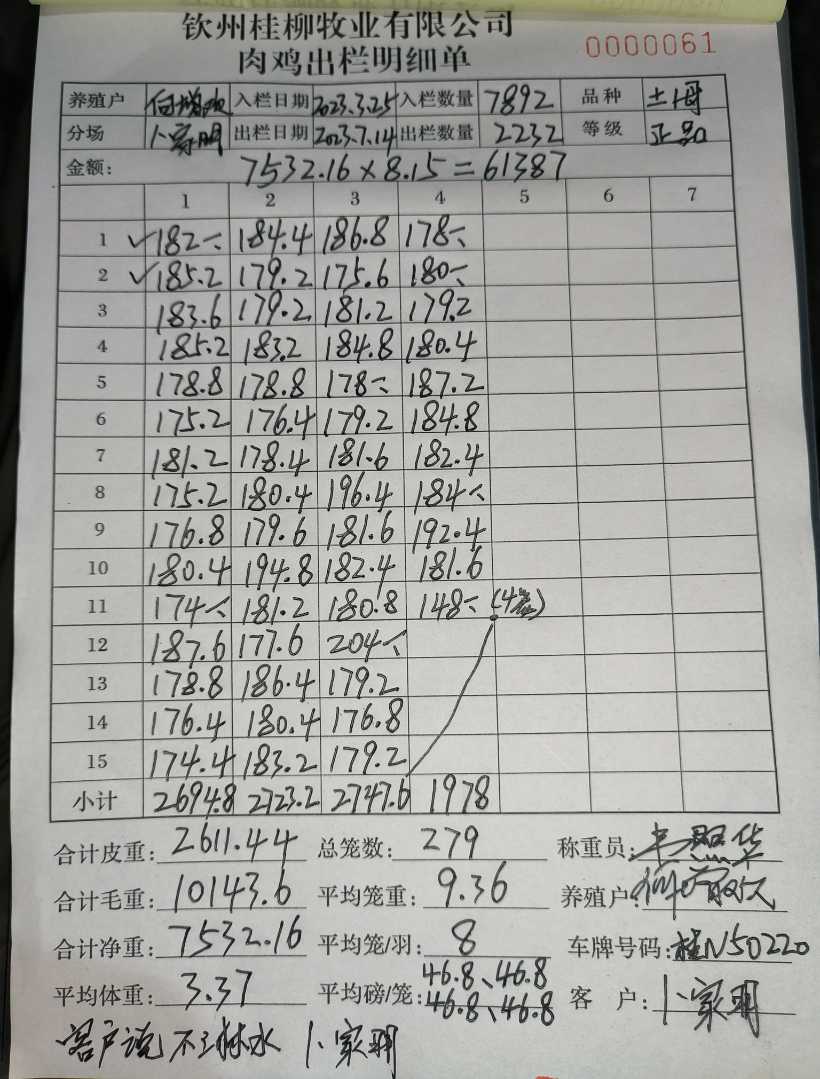 钦州桂柳牧业有限公司
肉鸡出栏明细单 0000061
养殖户 何增欢 入栏日期 2023.3.25 入栏数量 7892 品种 土哥
分场 卜家明 出栏日期 2023.7.14 出栏数量 2232 等级 正品
金额: 7532.16×8.15=61387
1 2 3 4 5 6 7
1 ✓182 184.4 186.8 178
2 ✓185.2 179.2 175.6 180
3 183.6 179.2 181.2 179.2
4 185.2 183.2 184.8 180.4
5 178.8 178.8 178 187.2
6 175.2 176.4 179.2 184.8
7 181.2 178.4 181.6 182.4
8 175.2 180.4 196.4 184
9 176.8 179.6 181.6 192.4
10 180.4 194.8 182.4 181.6
11 174 181.2 180.8 148 (4笼)
12 187.6 177.6 204
13 178.8 186.4 179.2
14 176.4 180.4 176.8
15 174.4 183.2 179.2
小计 2694.8 2723.2 2747.6 1978
合计皮重: 2611.44 总笼数: 279 称重员:
合计毛重: 10143.6 平均笼重: 9.36 养殖户:
合计净重: 7532.16 平均笼/羽: 8 车牌号码: 桂N50220
平均体重: 3.37 平均磅/笼: 46.8、46.8 客 户: 卜家明
46.8、46.8
客户说不 水 卜家明